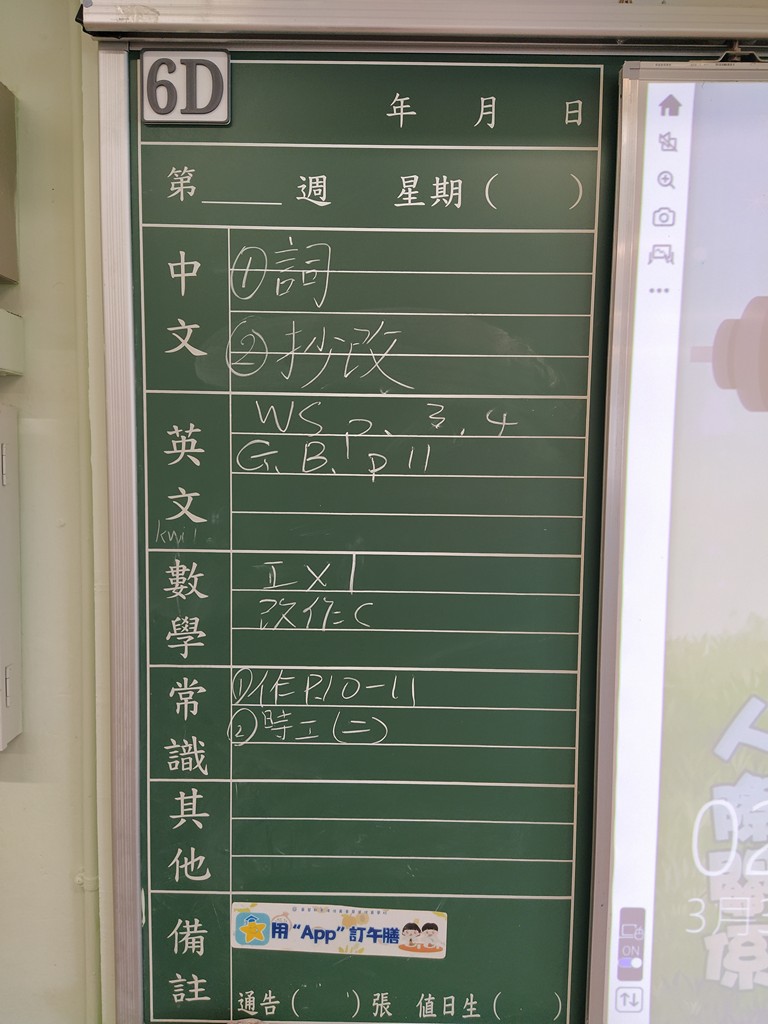 6D
年 月 日
第 週 星期( )
中文
①詞
②抄改
英文
WS p. 3, 4
G.B. p 11
數學
工 x 1
改作=C
常識
①作 P.10-11
②時工(二)
其他
備註
用“App”訂午膳
通告( )張 值日生( )
ON
02
3月
人際關係